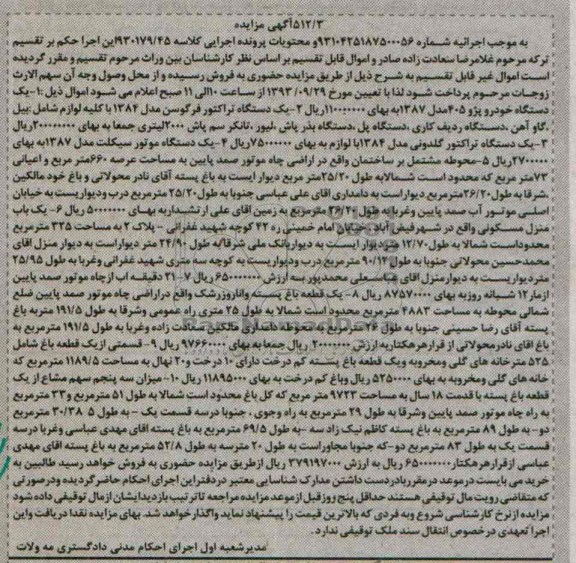 ۵۱۲/۳آگهی مزایده
به موجب اجرائیه شماره ۹۳۱۰۴۲۵۱۸۷۵۰۰۰۵۶و محتویات پرونده اجرایی کلاسه ۹۳۰۱۷۹/۴۵این اجرا حکم بر تقسیم
ترکه مرحوم غلامرضا سعادت زاده صادر و اموال قابل تقسیم بر اساس نظر کارشناسان بین وراث مرحوم تقسیم و مقرر گردیده
است اموال غیر قابل تقسیم به شرح ذیل از طریق مزایده حضوری به فروش رسیده و از محل وصول وجه آن سهم الارث
زوجات مرحوم پرداخت شود لذا با تعیین مورخ ۱۳۹۳/۰۹/۲۹ از ساعت ۱۰الی ۱۱ صبح اعلام می شود اموال ذیل :۱-یک
دستگاه خودرو پژو ۴۰۵مدل ۱۳۸۷به بهای ۱۱۰۰۰۰۰۰۰ریال ۲-یک دستگاه تراکتور فرگوسن مدل ۱۳۸۴ با کلیه لوازم شامل :بیل
،گاو آهن ،دستگاه ردیف کاری ،دستگاه پل ،دستگاه بذر پاش ،لیور ،تانکر سم پاش ۲۰۰۰لیتری جمعا به بهای ۲۰۰۰۰۰۰۰۰ریال
۳-یک دستگاه تراکتور گلدونی مدل ۱۳۸۴با لوازم به بهای ۷۵۰۰۰۰۰۰ریال ۴-یک دستگاه موتور سیکلت مدل ۱۳۸۷به بهای
۲۷۰۰۰۰۰ریال ۵-محوطه مشتمل بر ساختمان واقع در اراضی چاه موتور صمد پایین به مساحت عرصه ۶۶۰متر مربع و اعیانی
۷۳متر مربع که محدود است شمالابه طول ۲۵/۲۰متر مربع دیوار ایست به باغ پسته آقای نادر محولاتی و باغ خود مالکین
،شرقا به طول۲۶/۲۰مترمربع دیواراست به دامداری اقای علی عباسی جنوبا به طول۲۵/۲۰ مترمربع درب ودیواریست به خیابان
اصلی موتور آب صمد پایین وغربا به طول ۲۶/۲۰ مترمربع به زمین اقای علی ارتشیداربه بهای ۵۰۰۰۰۰۰۰ ریال ۶- یک باب
منزل مسکونی واقع در شهرفیض آباد خیابان امام خمینی ره ۴۲ کوچه شهید غفرانی - پلاک ۲ به مساحت ۳۲۵ مترمربع
محدوداست شمالا به طول ۱۲/۷۰ متر دیوار ایست به دیواربانک ملی شرقا به طول ۲۴/۹۰ متر دیواراست به دیوار منزل اقای
محمدحسین محولاتی جنوبا به طول ۹۰/۱۴ مترمربع درب ودیواریست به کوچه سه متری شهید غفرانی وغربا به طول ۲۵/۹۵
متردیواریست به دیوارمنزل اقای محمدپور به ارزش ۶۵۰۰۰۰۰۰۰ ریال ۷-۲۱ دقیقه اب ازچاه موتور صمد پایین
ازمدار۱۲ شبانه روزبه بهای ۸۷۵۷۰۰۰۰ ریال ۸- یک قطعه باغ پسته واناروزرشک واقع دراراضی چاه موتور صمد پایین ضلع
شمالی محوطه به مساحت ۴۸۸۳ مترمربع محدود است شمالا به طول ۲۵ متری راه عمومی وشرقا به طول ۱۹۱/۵ متربه باغ
پسته آقای رضا حسینی جنوبا به طول ۲۶ مترمربع به محوطه دامداری مالکین سعادت زاده وغربا به طول ۱۹۱/۵ مترمربع به
باغ اقای نادرمحولاتی از قرارهرهکتاربه ارزش ۲۰۰۰۰۰۰۰۰ ریال جمعا به بهای ۹۷۶۶۰۰۰۰ ریال ۹- قسمتی ازیک قطعه باغ شامل
۵۲۵ مترخانه های گلی ومخروبه ویک قطعه باغ پسته کم درخت دارای ۱۰ درخت و۲۰ نهال به مساحت ۱۱۸۹/۵ مترمربع که
خانه های گلی ومخروبه به بهای ۵۲۵۰۰۰۰ ریال وباغ کم درخت به بهای ۱۱۸۹۵۰۰۰ ریال ۱۰- میزان سه پنجم سهم مشاع از یک
قطعه باغ پسته با قدمت ۱۸ سال به مساحت ۹۷۲۳ متر مربع که کل باغ محدود است شمالا به طول ۵۱ مترمربع و۳۳ مترمربع
به راه چاه موتور صمد پایین وشرقا به طول ۲۹ مترمربع به راه وجوی ، جنوبا درسه قسمت یک - به طول ۵ ۳۰/۳۸ مترمربع
دو- به طول ۸۹ مترمربع به باغ پسته کاظم نیک زاد سه -به طول ۶۹/۵ مترمربع به باغ پسته اقای مهدی عباسی وغربا درسه
قسمت یک به طول ۸۳ مترمربع دو-که جنوبا مجاوراست به طول ۲۰ مترسه به طول ۵۲/۸ مترمربع به باغ پسته اقای مهدی
عباسی ازقرارهرهکتار۶۵۰۰۰۰۰۰۰ ریال به ارزش ۳۷۹۱۹۷۰۰۰ ریال ازطریق مزایده حضوری به فروش خواهد رسید طالبین به
خرید می بایست درموعد در مقرربادردست داشتن مدارک شناسایی معتبر دردفتراین اجرای احکام حاضرگردیده ودرصورتی
که متقاضی رویت مال توقیفی هستند حداقل پنج روزقبل ازموعد مزایده مراجعه تاترتیب بازدیدایشان ازمال توقیفی داده شود
مزایده ازنرخ کارشناسی شروع وبه فردی که بالاترین قیمت را پیشنهاد نماید واگذارخواهد شد. بهای مزایده نقدا دریافت واین
اجرا تعهدی درخصوص انتقال سند ملک توقیفی ندارد .
مدیرشعبه اول اجرای احکام مدنی دادگستری مه ولات